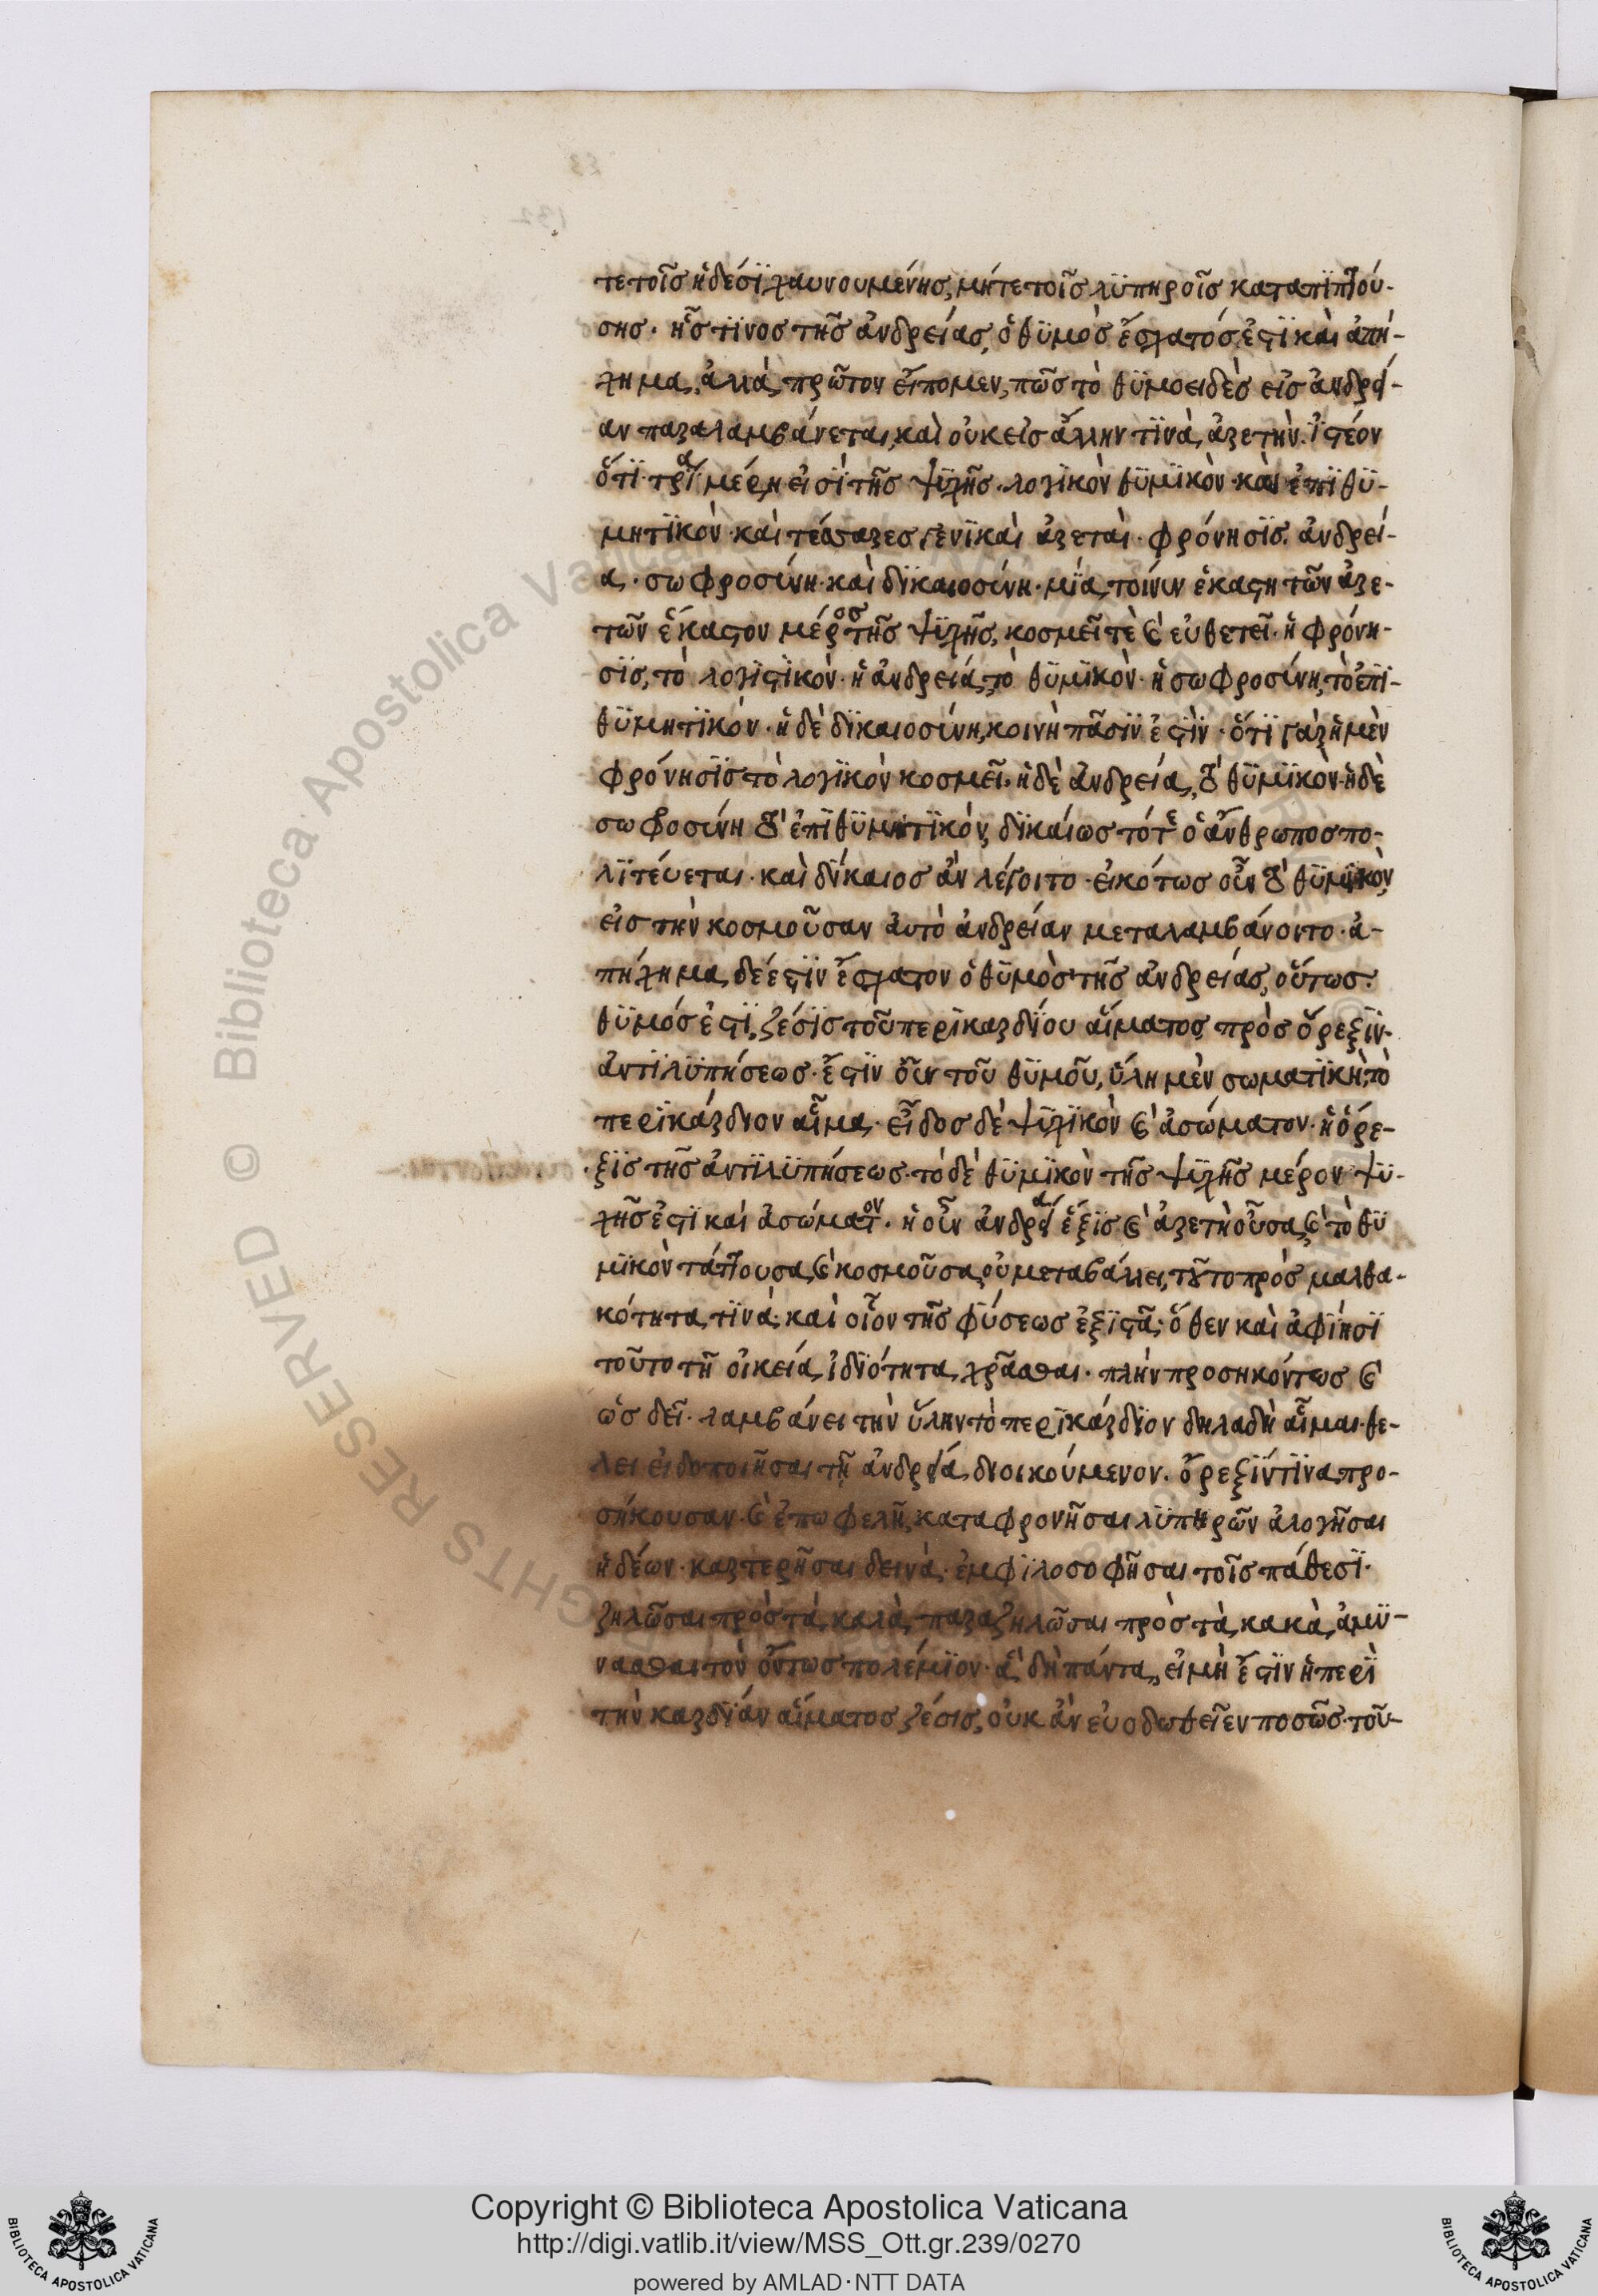 τε τοῖσ ἡδέσϊ χαυνουμένησ, μήτε τοῖσ λϋπηροῖσ καταπϊπτού-
σησ· ἧσ τϊνοσ τῆσ ἀνδρείασ, ὁ θϋμὸσ ἔσχατόσ ἐστϊ καὶ ἀπή-
χημα, ἀλλὰ πρῶτον εἴπομεν, πῶσ τὸ θϋμοειδὲσ εἰσ ἀνδρεί-
αν παραλαμβάνεται, καὶ οὐκ εἰσ ἄλλην τϊνὰ ἀρετὴν. ἰστέον
ὅτϊ τρία μέρη εἰσὶ τῆσ ψϋχῆσ· λογϊκὸν θϋμϊκὸν καὶ ἐπϊθϋ-
μητϊκὸν· καὶ τέσσαρεσ γενϊκαὶ ἀρεταὶ· φρόνησϊσ· ἀνδρεί-
α· σωφροσίνη· καὶ δϊκαιοσίνη· μϊα τοίνιν ἑκάστη τῶν ἀρε-
τῶν ἕκαστον μέροσ τῆσ ψϋχῆσ, κοσμεῖ τὲ ϗ εὐθετεῖ· ἡ φρόνη-
σϊσ, τὸ λογϊστϊκὸν· ἡ ἀνδρεία, τὸ θϋμϊκὸν· ἡ σωφροσίνη, τὸ ἐπϊ-
θϋμητϊκόν· ἡ δὲ δϊκαιοσίνη, κοινὴ πᾶσϊν ἐστὶν· ὅτϊ γὰρ ἡ μὲν
φρόνησϊσ τὸ λογϊκὸν κοσμεῖ, ἡ δὲ ἀνδρεία, τὸ θϋμϊκὸν· ἡ δὲ
σωφροσίνη τὸ ἐπϊθϋμητϊκόν, δϊκαίωσ τότε ὁ ἄνθρωποσ πο-
λϊτεύεται· καὶ δίκαιοσ ἂν λέγοιτο· εἰκότωσ οὖν τὸ θϋμϊκὸν,
εἰσ τὴν κοσμοῦσαν ἀυτὸ ἀνδρείαν μεταλαμβάνοντο· ἀ-
πήχημα δέ ἐστϊν ἔσχατον ὁ θϋμὸσ τῆσ ἀνδρείασ, οὕτωσ·
θϋμόσ ἐστϊ, ζέσϊσ τοῦ περϊκαρδίου αἵματοσ πρὸσ ὄρεξϊν
ἀντϊλϋπήσεωσ· ἔστϊν οὖν τοῦ θϋμοῦ, ὕλη μὲν σωματϊκὴ, τὸ
περϊκάρδιον αἷμα· εἶδοσ δὲ ψϋχϊκὸν ϗ ἀσώματον· ἡ ὄρε-
ξϊσ τῆσ ἀντϊλϋπήσεωσ· τὸ δὲ θϋμϊκὸν τῆσ ψϋχῆσ μέρον ψϋ-
χῆσ ἐστϊ καὶ ἀσώματον· ἡ οὖν ἀνδρεία ἕξϊσ ϗ ἀρετὴ οὖσα, ϗ τὸ θϋ
μϊκὸν τάττουσα, ϗ κοσμοῦσα, οὐ μεταβάλλει, τοῦτο πρὸσ μαλθα-
κότητα τϊνὰ· καὶ οἷον τῆσ φύσεωσ ἐξϊστᾶ· ὅθεν καὶ ἀφϊησϊ
τοῦτο τῆ οἰκεία ἰδϊότητα χρᾶσθαι· πλὴν προσηκόντωσ ϗ
ὡσ δεῖ· λαμβάνει τὴν ὕλην τὸ περϊκάρδϊον δηλαδὴ αἷμα· θε-
λει εἰδοποιῆσαι τῆ ἀνδρεία διοικούμενον· ὄρεξϊν τϊνα προ-
σήκουσαν ϗ ἐπωφελῆ, καταφρονῆσαι λϋπηρῶν ἀλογῆσαι
ἡδέων· καρτερῆσαι δεινὰ· ἐμφϊλοσοφῆσαι τοῖσ πάθεσϊ·
ζηλῶσαι πρὸσ τὰ καλὰ, παραζηλῶσαι πρὸσ τὰ κακὰ, ἀμϋ-
νασθαι τὸν ὄντωσ πολέμϊον· ἃ δὴ πάντα, εἰ μὴ ἔστϊν ἡ περὶ
τὴν καρδϊάν αἵματοσ ζέσισ, οὐκ ἂν εὐοδωθεῖεν ποσῶσ· τοῦ-
Copyright © Biblioteca Apostolica Vaticana
http://digi.vatlib.it/view/MSS_Ott.gr.239/0270
powered by AMLAD·NTT DATA
BIBLIOTECA APOSTOLICA VATICANA
BIBLIOTECA APOSTOLICA VATICANA